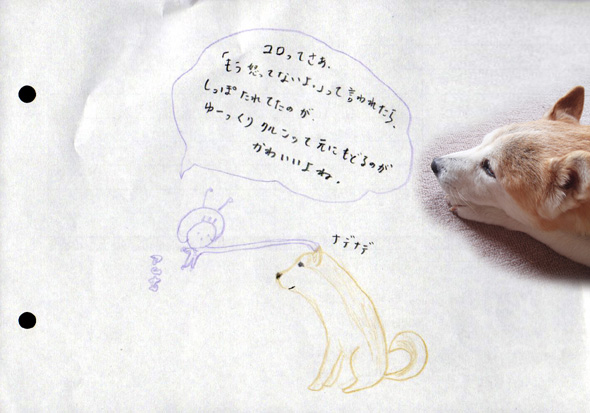 コロってさあ、
「もう怒ってないよ。」って言われたら、
しっぽたれてたのが、
ゆーっくりクルンって元にもどるのが
かわいいよね。
ナデナデ